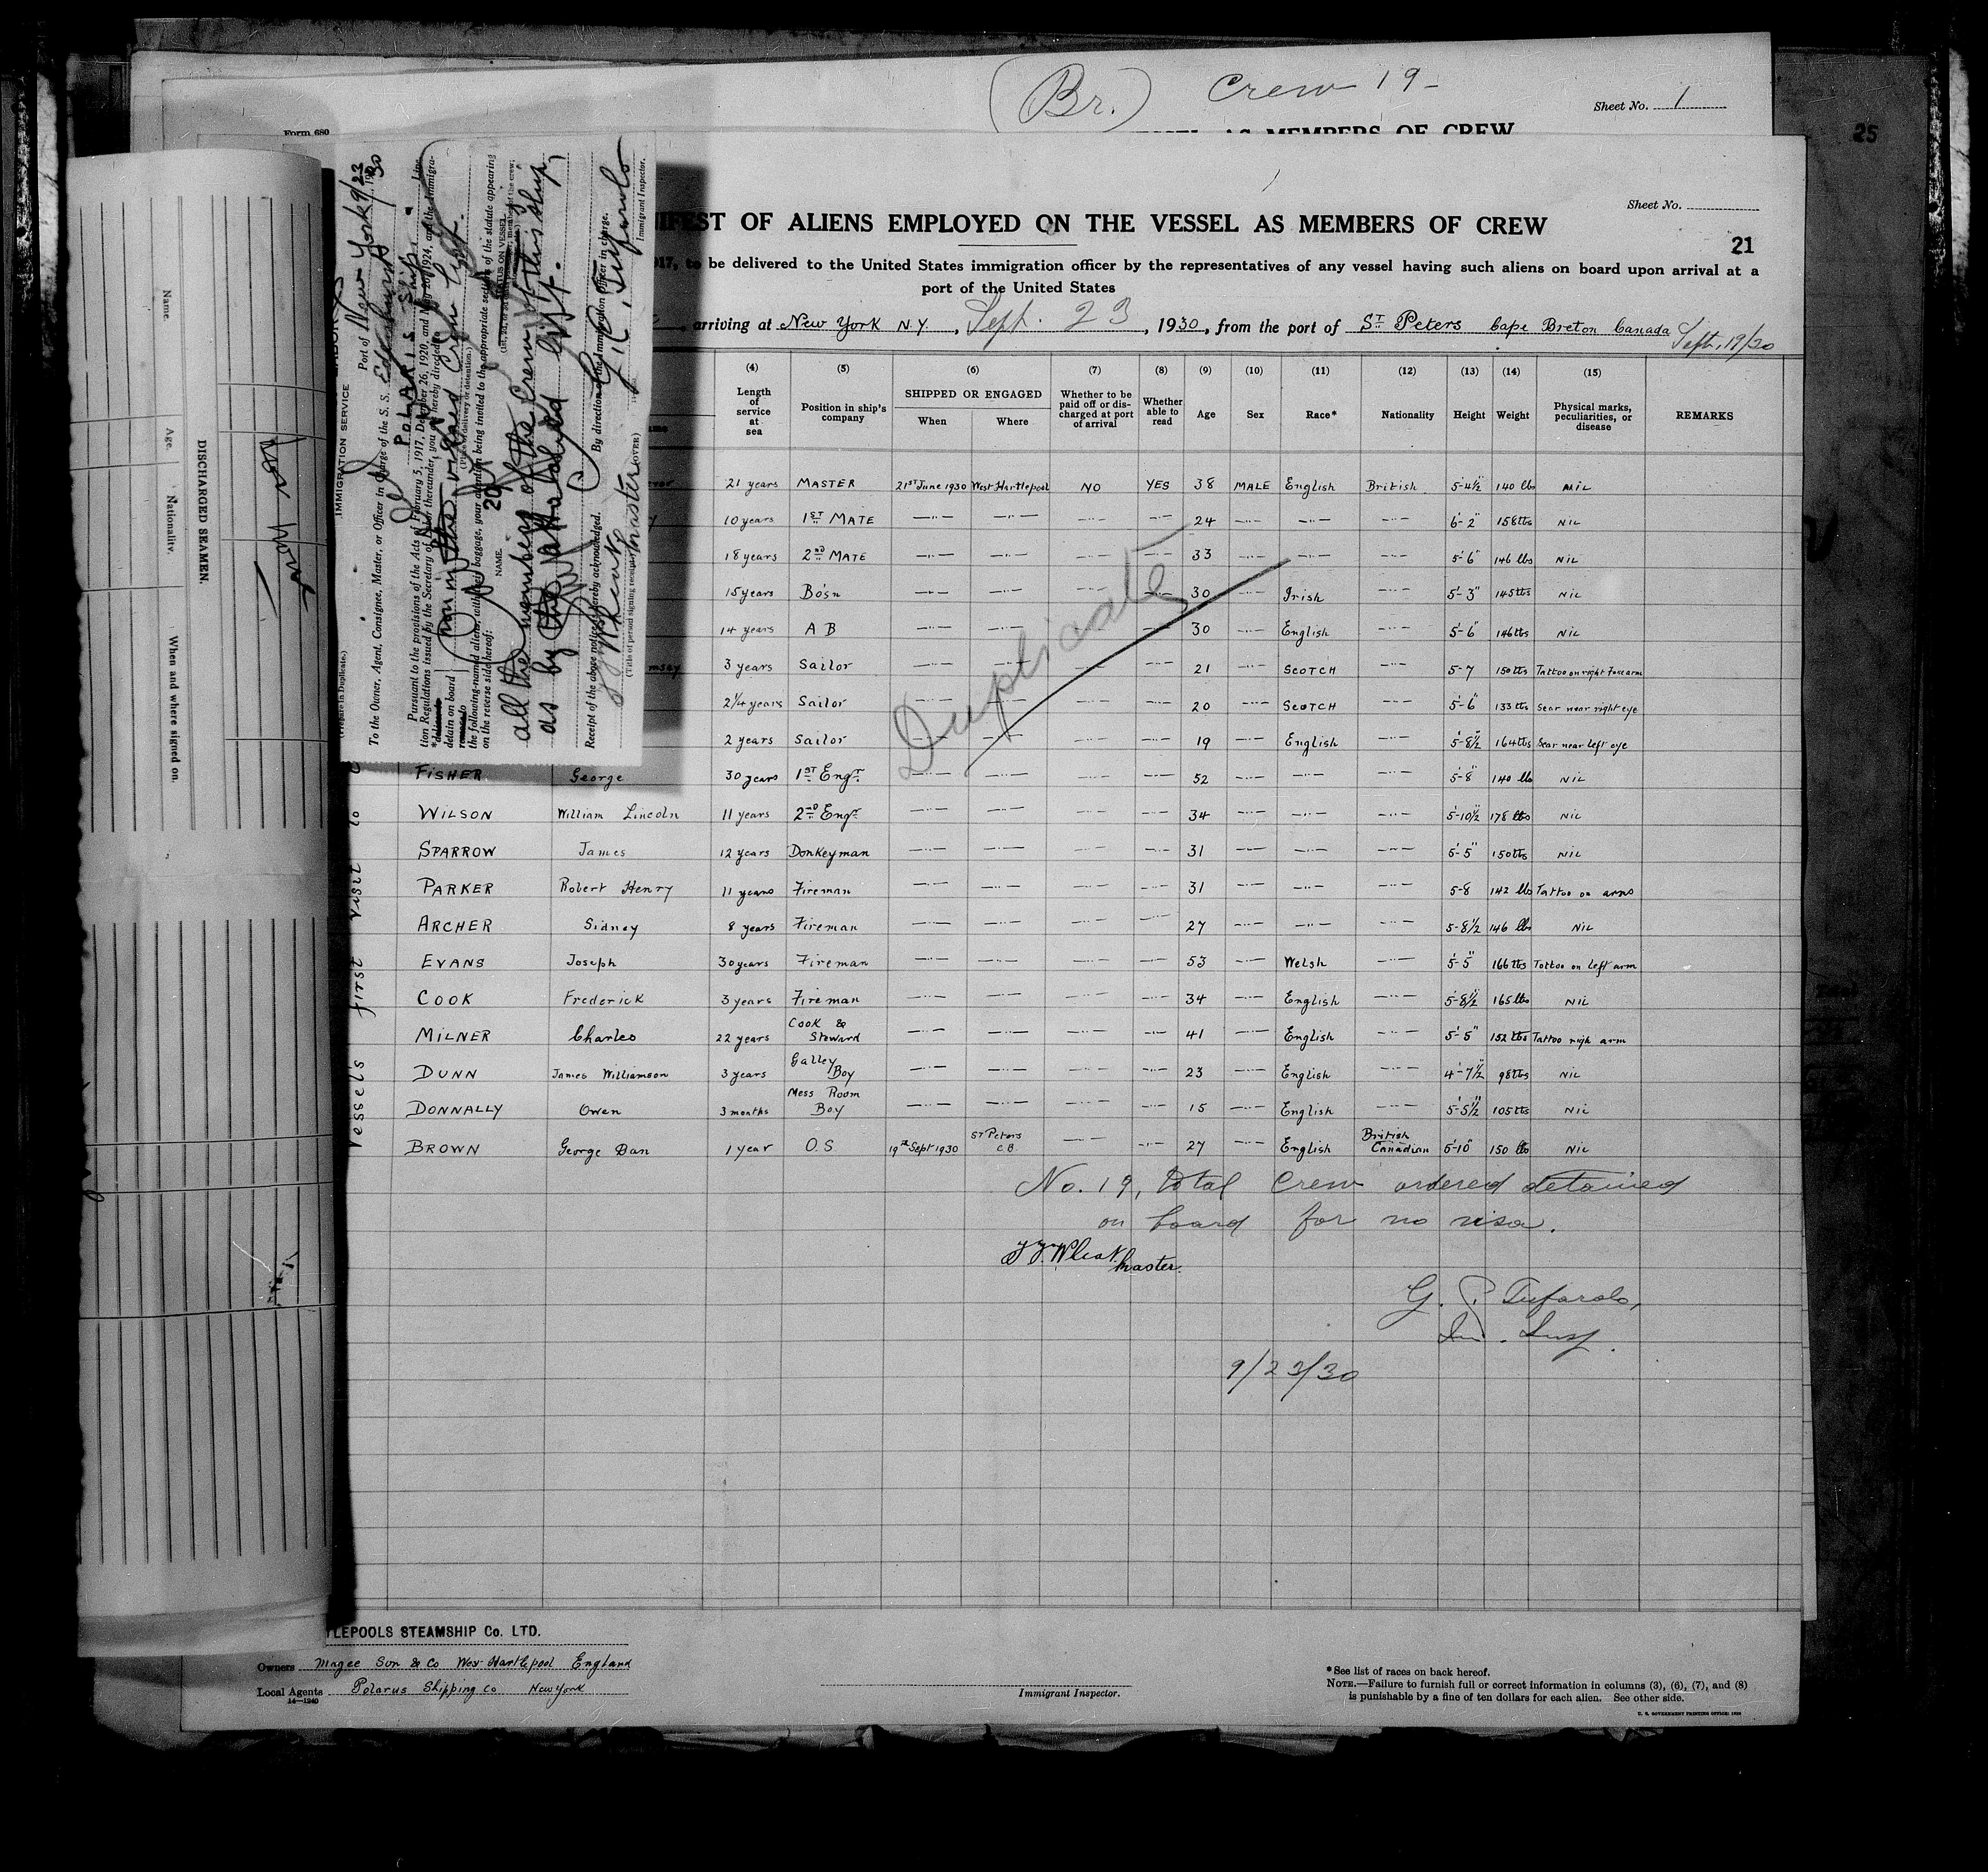 (Br.) Crew 19 -
Sheet No. 1
Form 680
AS MEMBERS OF CREW
25
Sheet No.
IFEST OF ALIENS EMPLOYED ON THE VESSEL AS MEMBERS OF CREW
21
917, to be delivered to the United States immigration officer by the representatives of any vessel having such aliens on board upon arrival at a
port of the United States
, arriving at New York N.Y. , Sept. 23 , 1930, from the port of St Peters Cape Breton Canada Sept. 19/30
(4) (5) (6) (7) (8) (9) (10) (11) (12) (13) (14) (15)
Length of service at sea
Position in ship's company
SHIPPED OR ENGAGED
When Where
Whether to be paid off or discharged at port of arrival
Whether able to read
Age Sex Race* Nationality Height Weight
Physical marks, peculiarities, or disease
REMARKS
21 years MASTER 21st June 1930 West Hartlepool NO YES 38 MALE English British 5-4½ 140 lbs NIL
10 years 1st MATE —··— —··— —··— —··— 24 —··— —··— —··— 6'-2" 158 lbs NIL
18 years 2nd MATE —··— —··— —··— —··— 33 —··— —··— —··— 5'-6" 146 lbs NIL
15 years Bosn —··— —··— —··— —··— 30 —··— Irish —··— 5'-3" 145 lbs NIL
14 years A B —··— —··— —··— —··— 30 —··— English —··— 5'-6" 146 lbs NIL
3 years Sailor —··— —··— —··— —··— 21 —··— SCOTCH —··— 5-7 150 lbs Tattoo on right forearm
2¼ years Sailor —··— —··— —··— —··— 20 —··— SCOTCH —··— 5-6" 133 lbs Scar near right eye
2 years Sailor —··— —··— —··— —··— 19 —··— English —··— 5-8½" 164 lbs Scar near left eye
FISHER George 30 years 1st Engr. —··— —··— —··— —··— 52 —··— —··— —··— 5-8" 140 lbs NIL
WILSON William Lincoln 11 years 2nd Engr —··— —··— —··— —··— 34 —··— —··— —··— 5-10½" 178 lbs NIL
SPARROW James 12 years Donkeyman —··— —··— —··— —··— 31 —··— —··— —··— 5'-5" 150 lbs NIL
PARKER Robert Henry 11 years Fireman —··— —··— —··— —··— 31 —··— —··— —··— 5-8 142 lbs Tattoo on arms
ARCHER Sidney 8 years Fireman —··— —··— —··— —··— 27 —··— —··— —··— 5-8½ 146 lbs NIL
EVANS Joseph 30 years Fireman —··— —··— —··— —··— 53 —··— Welsh —··— 5'-5" 166 lbs Tattoo on left arm
COOK Frederick 3 years Fireman —··— —··— —··— —··— 34 —··— English —··— 5-8½" 165 lbs NIL
MILNER Charles 22 years Cook & Steward —··— —··— —··— —··— 41 —··— English —··— 5'-5" 152 lbs Tattoo righ arm
DUNN James Williamson 3 years Galley Boy —··— —··— —··— —··— 23 —··— English —··— 4'-7½" 98 lbs NIL
DONNALLY Owen 3 months Mess Room Boy —··— —··— —··— —··— 15 —··— English —··— 5'-5½" 105 lbs NIL
BROWN George Dan 1 year O.S 19th Sept 1930 St Peters C.B. —··— —··— 27 —··— English British Canadian 5'-10" 150 lbs NIL
Duplicate
No. 19, total Crew ordered detained
on board for no visa.
Wheat Master.
G. P. Tufarolo,
Im. Insp.
9/23/30
Vessel's first visit to
TLEPOOLS STEAMSHIP Co. LTD.
Owners Magee Son & Co West Hartlepool England
Local Agents Polarus Shipping Co New York
14—1240
Immigrant Inspector.
*See list of races on back hereof.
NOTE.—Failure to furnish full or correct information in columns (3), (6), (7), and (8)
is punishable by a fine of ten dollars for each alien. See other side.
U. S. GOVERNMENT PRINTING OFFICE: 1929
(Prepare in Duplicate.)
IMMIGRATION SERVICE
Port of New York 9/23 1930
To the Owner, Agent, Consignee, Master, or Officer in Charge of the S. S. Edenhurst
POLARIS Ship. Line
Pursuant to the provisions of the Acts of February 5, 1917, December 26, 1920, and May 26, 1924, and the Immigra-
tion Regulations issued by the Secretary of Labor thereunder, you are hereby directed to
detain on board
(Place of delivery or detention.)
the following-named aliens, with their baggage, your attention being invited to the appropriate section of the statute appearing
on the reverse side hereof:
NAME. STATUS ON VESSEL
all the members of the Crew of this ship,
as by the attached list.
Receipt of the above notice is hereby acknowledged. By direction of the Immigration Officer in charge.
Wheat Master
(Title of person signing receipt.)
Immigrant Inspector.
(OVER)
DISCHARGED SEAMEN
Name. Age. Nationality. When and where signed on.